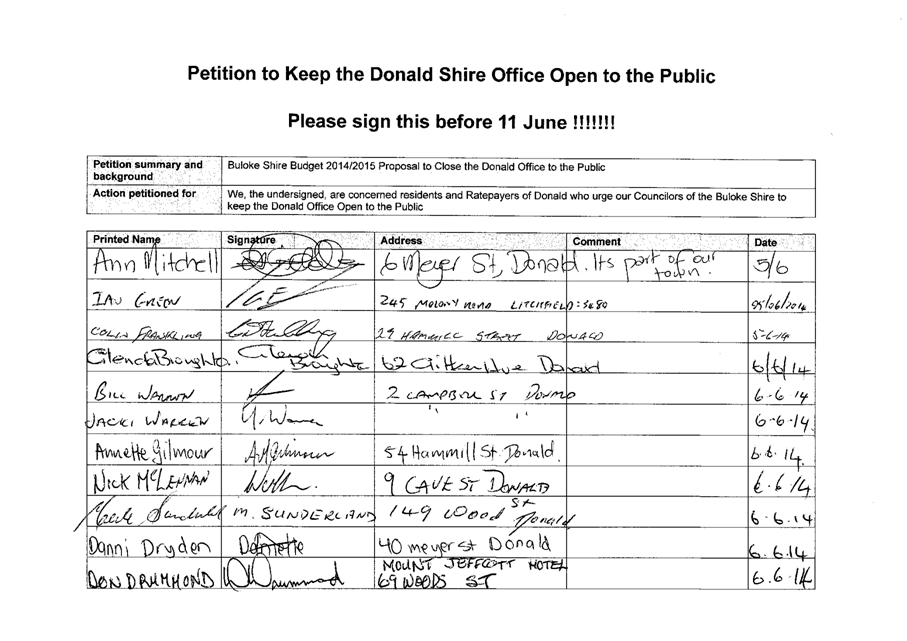 Petition to Keep the Donald Shire Office Open to the Public
Please sign this before 11 June !!!!!!!
Petition summary and background Buloke Shire Budget 2014/2015 Proposal to Close the Donald Office to the Public
Action petitioned for We, the undersigned, are concerned residents and Ratepayers of Donald who urge our Councilors of the Buloke Shire to
keep the Donald Office Open to the Public
Printed Name Signature Address Comment Date
Ann Mitchell 6 Meyer St, Donald. Its part of our town. 5/6
IAN GREEN 245 MOLONY LITCHFIELD 3480 05/06/2014
COLIN 29 HAMMILL STREET DONALD 5-6-14
Glenda Broughton Glenda Broughton 62 Donald 6/6/14
BILL WARREN 2 CAMPBELL ST DONALD 6-6 14
JACKI WARREN " " 6-6-14
Annette Gilmour A M Gilmour 54 Hammill St. Donald. 6.6.14.
NICK McLENNAN 9 CAVE ST DONALD 6.6.14
M. SUNDERLAND 149 Wood St Donald 6-6.14
Danni Dryden 40 meyer st Donald 6.6.14
DON DRUMMOND MOUNT JEFFCOTT HOTEL
69 WOODS ST 6.6.14